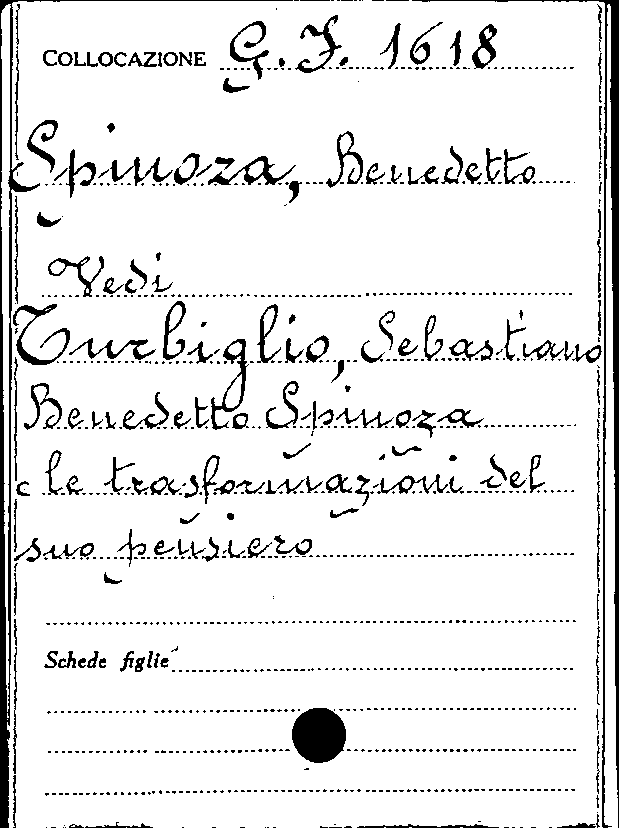 COLLOCAZIONE G. F. 1618
Spinoza, Benedetto
Vedi
Turbiglio, Sebastiano
Benedetto Spinoza
e le trasformazioni del
suo pensiero
Schede figlie